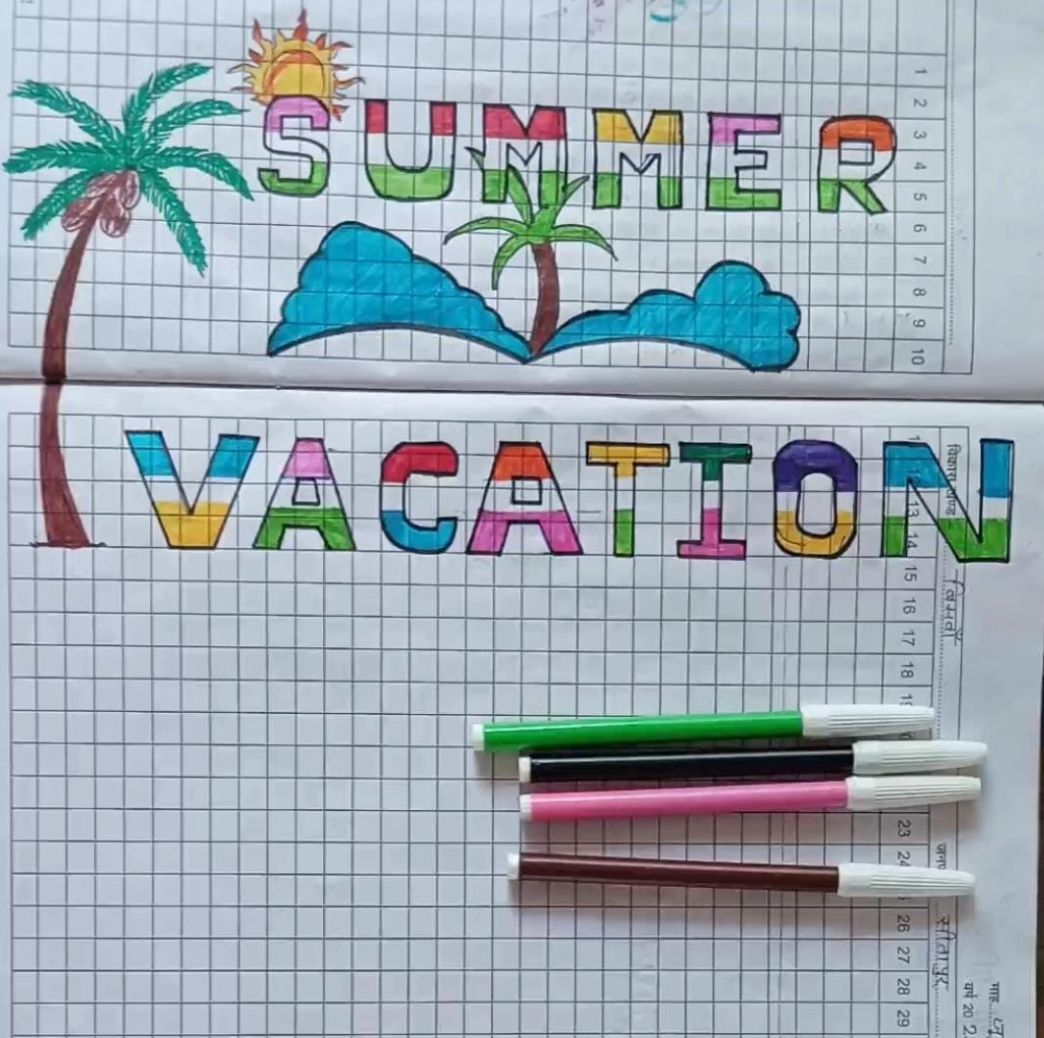 SUMMER
VACATION
1
2
3
4
5
6
7
8
9
10
12
13
14
15
16
17
18
23
24
26
27
28
29
विकास खण्ड
सीतापुर
माह
वर्ष 20 2